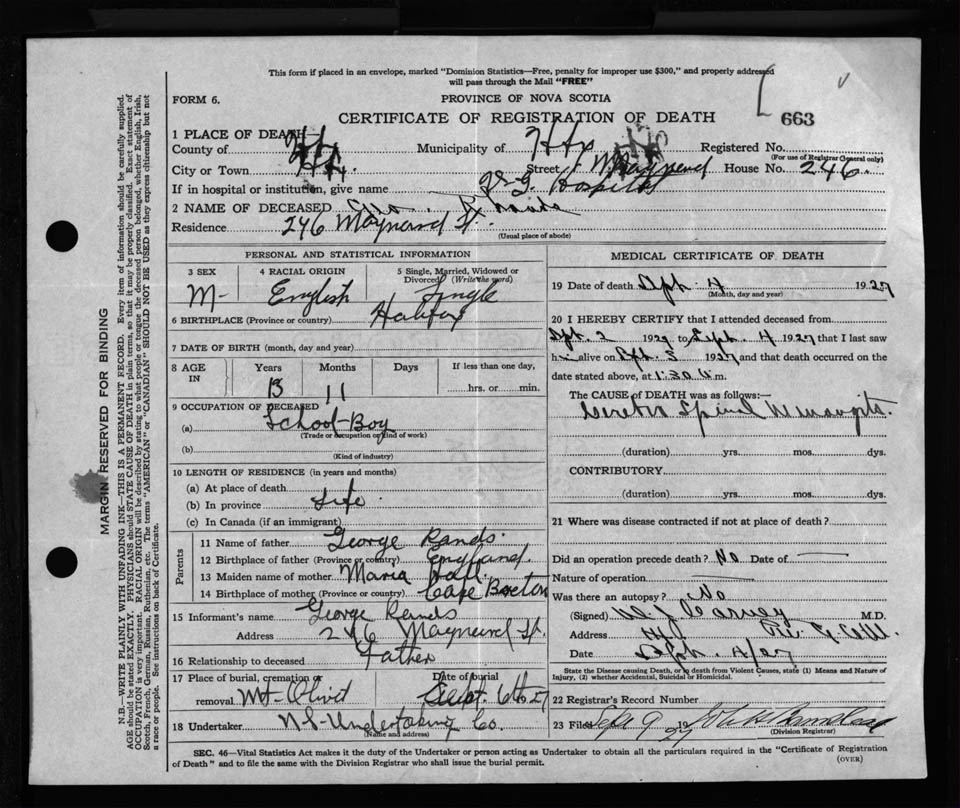 This form if placed in an envelope, marked "Dominion Statistics—Free, penalty for improper use $300," and properly addressed
will pass through the Mail "FREE"
FORM 6.
PROVINCE OF NOVA SCOTIA
CERTIFICATE OF REGISTRATION OF DEATH
663
1 PLACE OF DEATH—
County of Hfx Municipality of Hfx Registered No.
(For use of Registrar General only)
City or Town Hfx Street Maynard House No. 246
If in hospital or institution, give name V. G. Hospital
2 NAME OF DECEASED Rands
Residence 246 Maynard St.
(Usual place of abode)
PERSONAL AND STATISTICAL INFORMATION
3 SEX M-
4 RACIAL ORIGIN English
5 Single, Married, Widowed or Divorced (Write the word) Single
6 BIRTHPLACE (Province or country) Halifax
7 DATE OF BIRTH (month, day and year)
8 AGE IN Years 13 Months 11 Days If less than one day, hrs. or min.
9 OCCUPATION OF DECEASED
(a) School-Boy
(Trade or occupation or kind of work)
(b)
(Kind of industry)
10 LENGTH OF RESIDENCE (in years and months)
(a) At place of death
(b) In province Life
(c) In Canada (if an immigrant)
Parents
11 Name of father George Rands
12 Birthplace of father (Province or country) England
13 Maiden name of mother Maria Hall
14 Birthplace of mother (Province or country) Cape Breton
15 Informant's name George Rands
Address 246 Maynard St.
16 Relationship to deceased Father
17 Place of burial, cremation or removal Mt-Olivet
Date of burial Sept. 6th 1927
18 Undertaker N S Undertaking Co.
(Name and address)
MEDICAL CERTIFICATE OF DEATH
19 Date of death Sept. 4 1927
(Month, day and year)
20 I HEREBY CERTIFY that I attended deceased from
Sept. 2 1927 to Sept. 4 1927 that I last saw
him alive on Sept. 3 1927 and that death occurred on
date stated above, at 1:30 a m.
The CAUSE OF DEATH was as follows:—
Cerebro Spinal Meningitis.
(duration) yrs. mos. dys.
CONTRIBUTORY
(duration) yrs. mos. dys.
21 Where was disease contracted if not at place of death?
Did an operation precede death? No Date of —
Nature of operation —
Was there an autopsy? No
(Signed) M.D.
Address Hfx
Date Sept. 4/27
State the Disease causing Death, or in death from Violent Causes, state (1) Means and Nature of
Injury, (2) whether Accidental, Suicidal or Homicidal.
22 Registrar's Record Number
23 Filed Sept 9 1927
(Division Registrar)
SEC. 46—Vital Statistics Act makes it the duty of the Undertaker or person acting as Undertaker to obtain all the particulars required in the "Certificate of Registration
of Death" and to file the same with the Division Registrar who shall issue the burial permit.
(OVER)
MARGIN RESERVED FOR BINDING
N.B.—WRITE PLAINLY WITH UNFADING INK—THIS IS A PERMANENT RECORD. Every item of information should be carefully supplied.
AGE should be stated EXACTLY. PHYSICIANS should STATE CAUSE OF DEATH in plain terms, so that it may be properly classified. Exact statement of
OCCUPATION is very important. RACIAL ORIGIN will be described by stating to what people or tongue the deceased person belonged, whether English, Irish,
Scotch, French, German, Russian, Ruthenian, etc. The terms "AMERICAN" or "CANADIAN" SHOULD NOT BE USED as they express citizenship but not
a race or people. See instructions on back of Certificate.